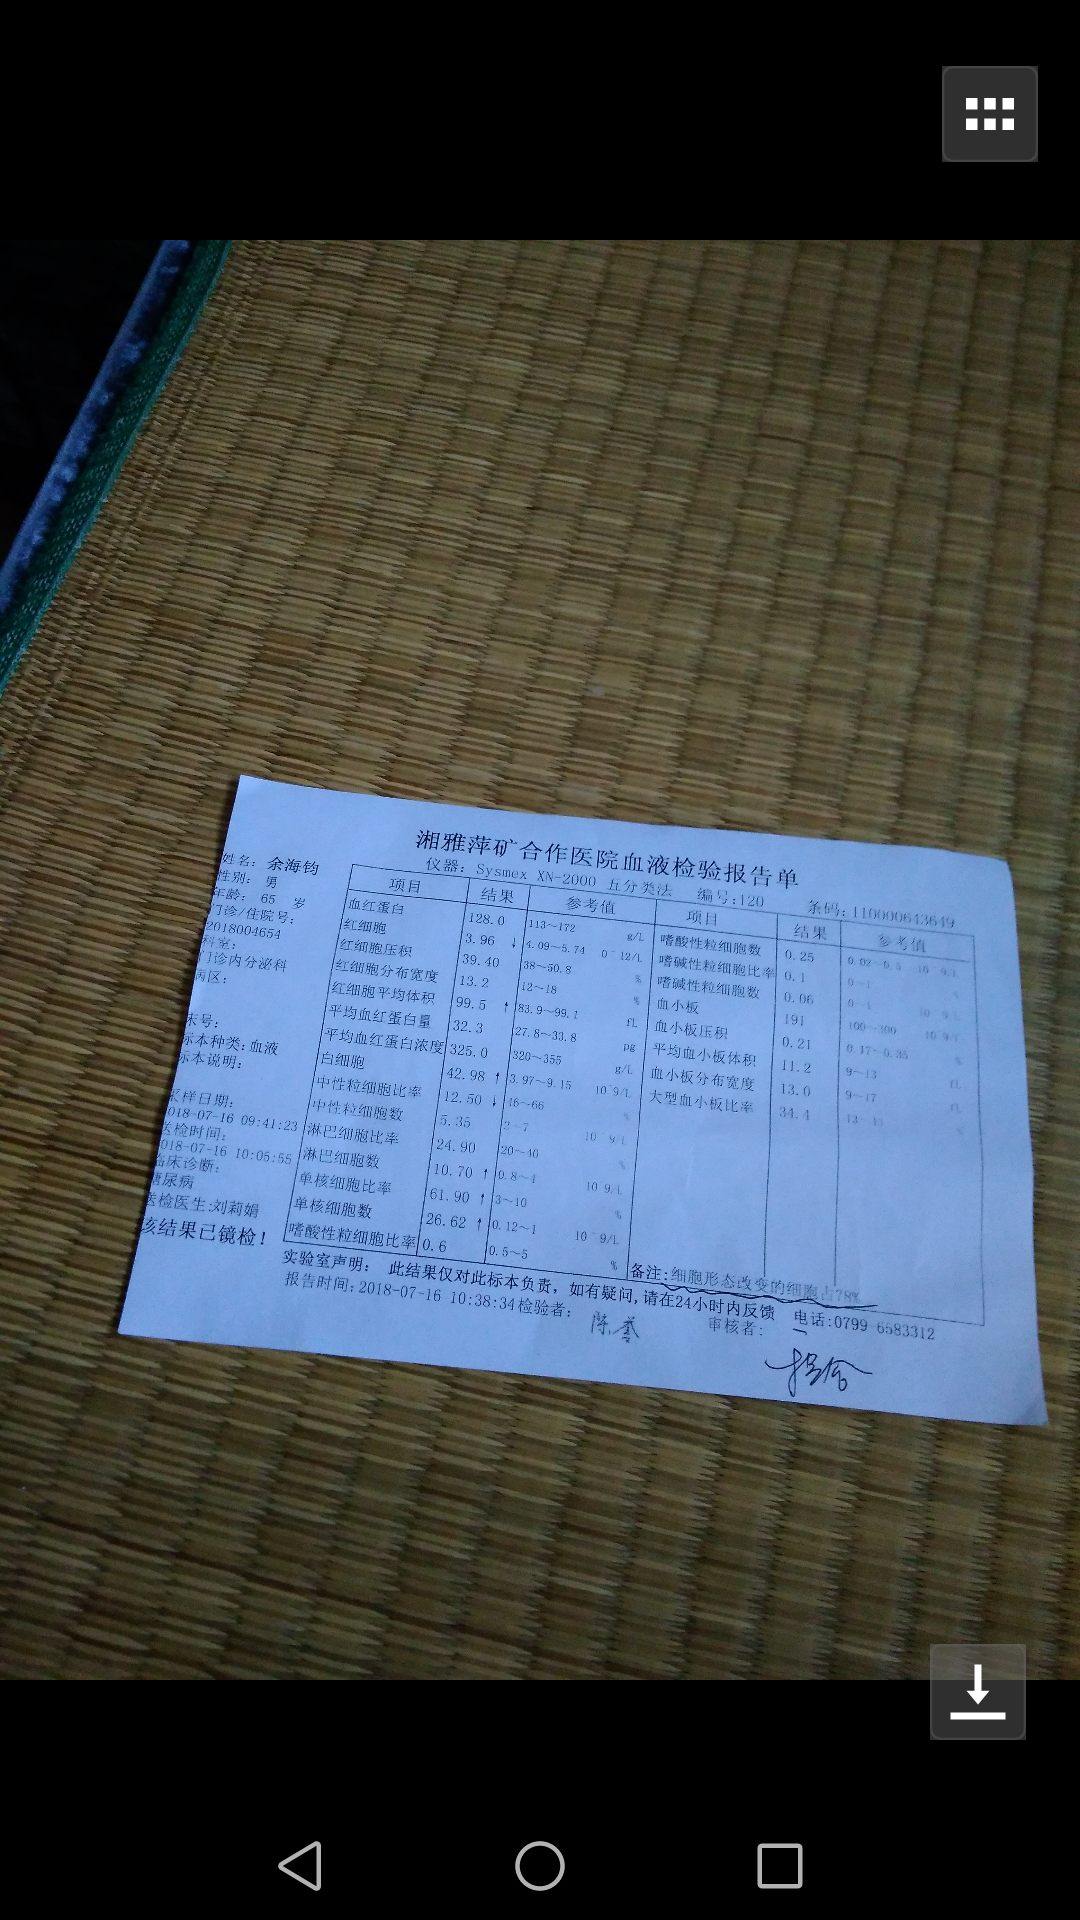 湘雅萍矿合作医院血液检验报告单
仪器: Sysmex XN-2000 五分类法 编号:120 条码:110000643649
姓名: 余海钧
性别: 男
年龄: 65 岁
门诊/住院号:
2018004654
科室:
门诊内分泌科
病区:
床号:
标本种类:血液
标本说明:
采样日期:
2018-07-16 09:41:23
送检时间:
2018-07-16 10:05:55
临床诊断:
糖尿病
送检医生:刘莉娟
该结果已镜检!
项目 结果 参考值
血红蛋白 128.0 113~172 g/L
红细胞 3.96 ↓ 4.09~5.74 0^12/L
红细胞压积 39.40 38~50.8 %
红细胞分布宽度 13.2 12~18 %
红细胞平均体积 99.5 ↑ 83.9~99.1 fL
平均血红蛋白量 32.3 27.8~33.8 pg
平均血红蛋白浓度 325.0 320~355 g/L
白细胞 42.98 ↑ 3.97~9.15 10^9/L
中性粒细胞比率 12.50 ↓ 46~66 %
中性粒细胞数 5.35 2~7 10^9/L
淋巴细胞比率 24.90 20~40 %
淋巴细胞数 10.70 ↑ 0.8~4 10^9/L
单核细胞比率 61.90 ↑ 3~10 %
单核细胞数 26.62 ↑ 0.12~1 10^9/L
嗜酸性粒细胞比率 0.6 0.5~5 %
项目 结果 参考值
嗜酸性粒细胞数 0.25 0.02~0.5 10^9/L
嗜碱性粒细胞比率 0.1 0~1 %
嗜碱性粒细胞数 0.06 10^9/L
血小板 191 100~300 10^9/L
血小板压积 0.21 0.17~0.35 %
平均血小板体积 11.2 9~13 fL
血小板分布宽度 13.0 9~17 fL
大型血小板比率 34.4 %
备注:细胞形态改变的细胞占78%
实验室声明: 此结果仅对此标本负责，如有疑问,请在24小时内反馈 电话:0799-6583312
报告时间:2018-07-16 10:38:34 检验者: 陈誉 审核者: